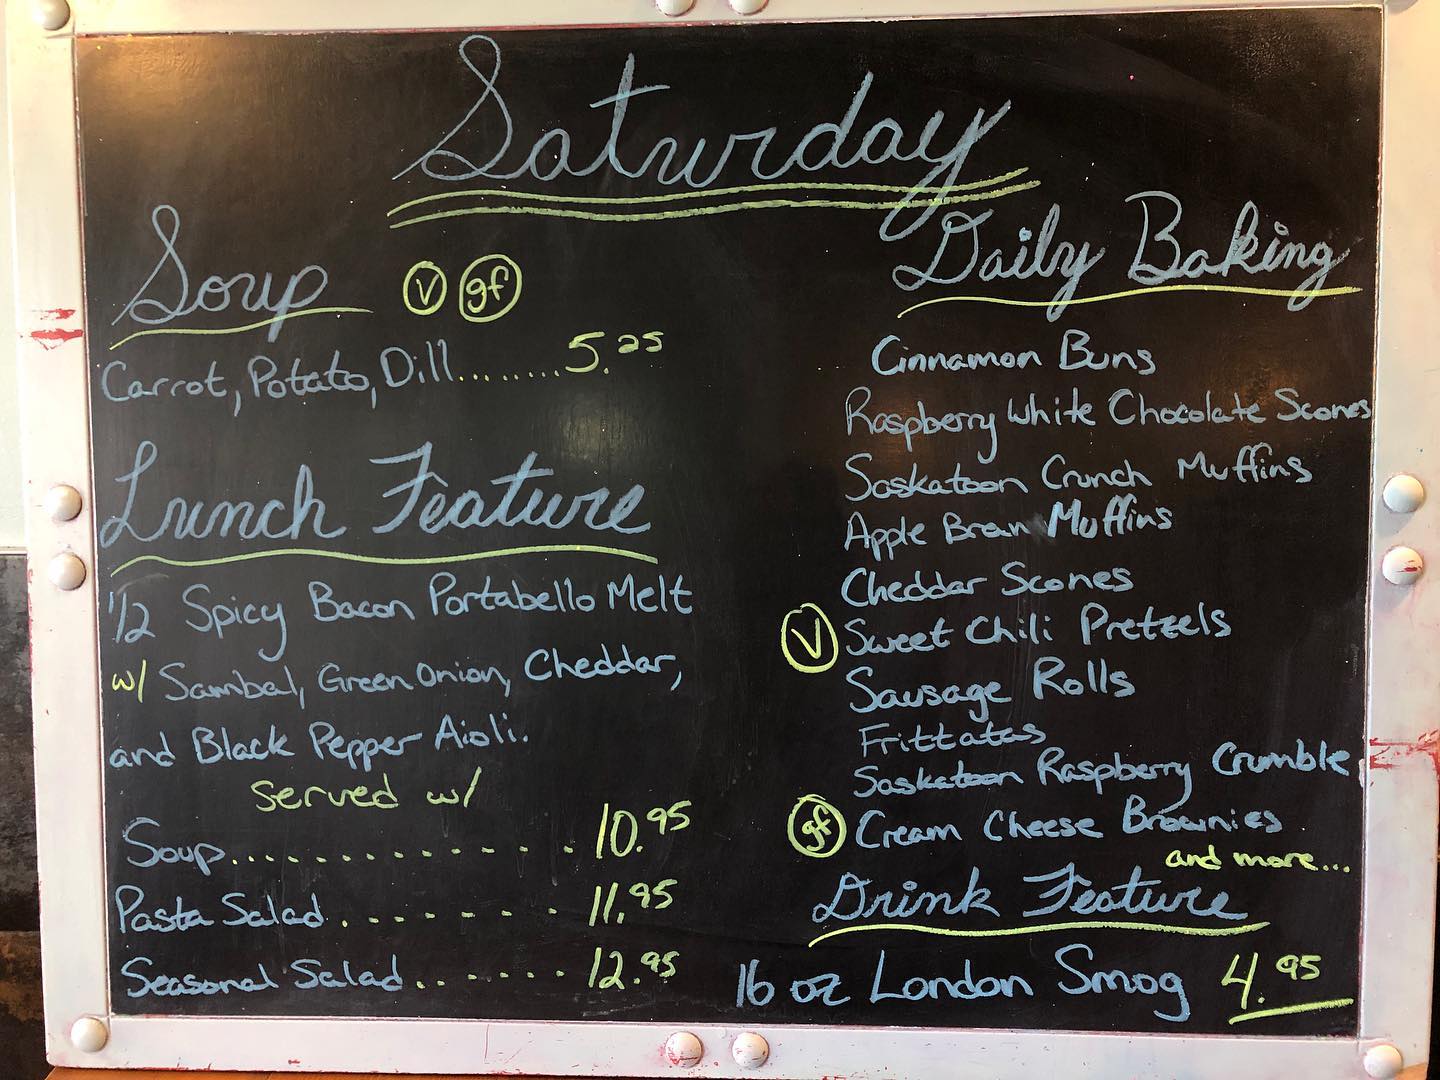 Saturday
Soup V gf
Carrot, Potato, Dill........5.25
Lunch Feature
1/2 Spicy Bacon Portabello Melt
w/ Sambal, Green Onion, Cheddar,
and Black Pepper Aioli.
served w/
Soup.............10.95
Pasta Salad........11.95
Seasonal Salad.......12.95
Daily Baking
Cinnamon Buns
Raspberry White Chocolate Scones
Saskatoon Crunch Muffins
Apple Bran Muffins
Cheddar Scones
V Sweet Chili Pretzels
Sausage Rolls
Frittatas
Saskatoon Raspberry Crumble
gf Cream Cheese Brownies
and more...
Drink Feature
16 oz London Smog 4.95